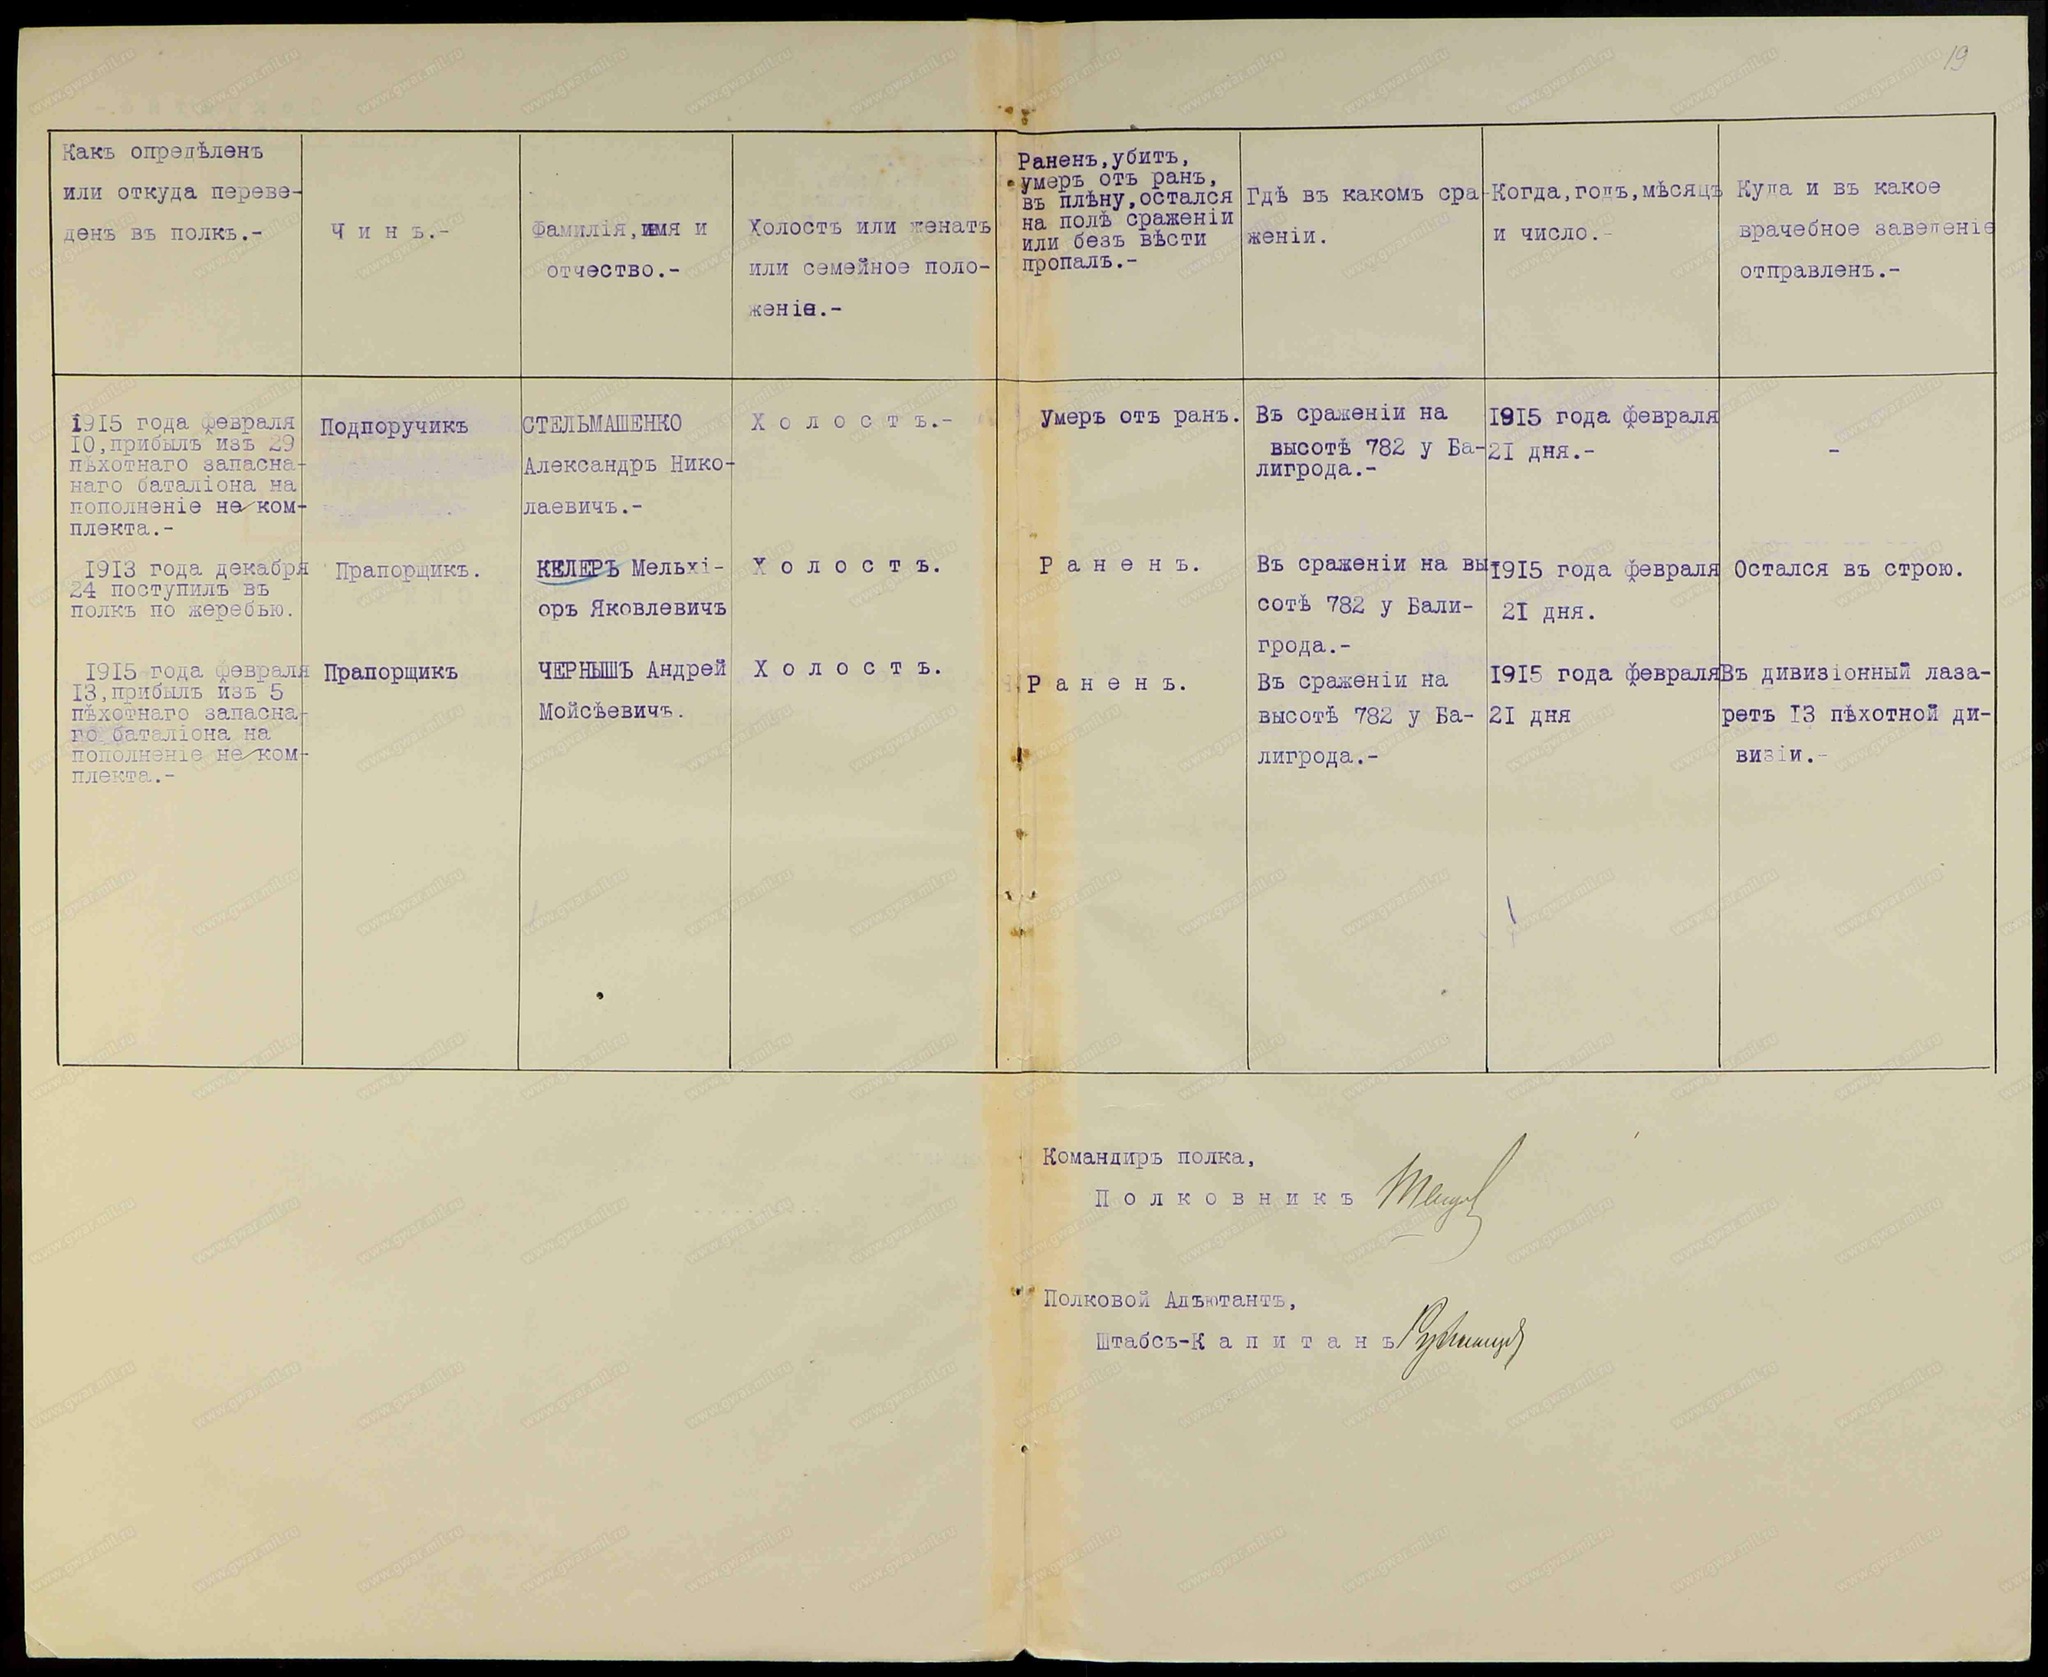 19
Какъ опредѣленъ
или откуда переве-
денъ въ полкъ.-
Чинъ.-
Фамилія, имя и
отчество.-
Холостъ или женатъ
или семейное поло-
женіе.-
Раненъ, убитъ,
умеръ отъ ранъ,
въ плѣну, остался
на полѣ сраженіи
или безъ вѣсти
пропалъ.-
Гдѣ въ какомъ сра-
женіи.
Когда, годъ, мѣсяцъ
и число.-
Куда и въ какое
врачебное заведеніе
отправленъ.-
1915 года февраля
10, прибылъ изъ 29
пѣхотнаго запасна-
наго баталіона на
пополненіе не ком-
плекта.-
Подпоручикъ
СТЕЛЬМАШЕНКО
Александръ Нико-
лаевичъ.-
Холостъ.-
Умеръ отъ ранъ.
Въ сраженіи на
высотѣ 782 у Ба-
лигрода.-
1915 года февраля
21 дня.-
-
1913 года декабря
24 поступилъ въ
полкъ по жеребью.
Прапорщикъ.
КЕЛЕРЪ Мельхі-
оръ Яковлевичъ
Холостъ.
Раненъ.
Въ сраженіи на вы
сотѣ 782 у Бали-
грода.-
1915 года февраля
21 дня.
Остался въ строю.
1915 года февраля
13, прибылъ изъ 5
пѣхотнаго запасна-
го баталіона на
пополненіе не ком-
плекта.-
Прапорщикъ
ЧЕРНЫШЪ Андрей
Мойсѣевичъ.
Холостъ.
Раненъ.
Въ сраженіи на
высотѣ 782 у Ба-
лигрода.-
1915 года февраля
21 дня
Въ дивизіонный лаза-
ретъ 13 пѣхотной ди-
визіи.-
Командиръ полка,
Полковникъ
Полковой Адъютантъ,
Штабсъ-Капитанъ
www.gwar.mil.ru